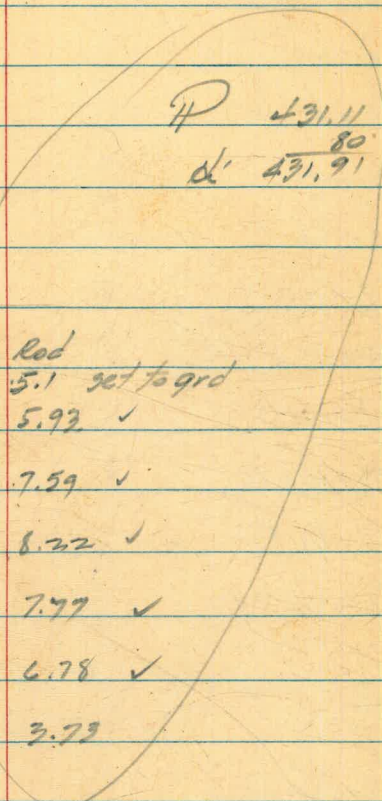 431.11
80
431.91
Rod
5.1 set to grd
5.93 ✓
7.59 ✓
8.22 ✓
7.77 ✓
6.78 ✓
3.73